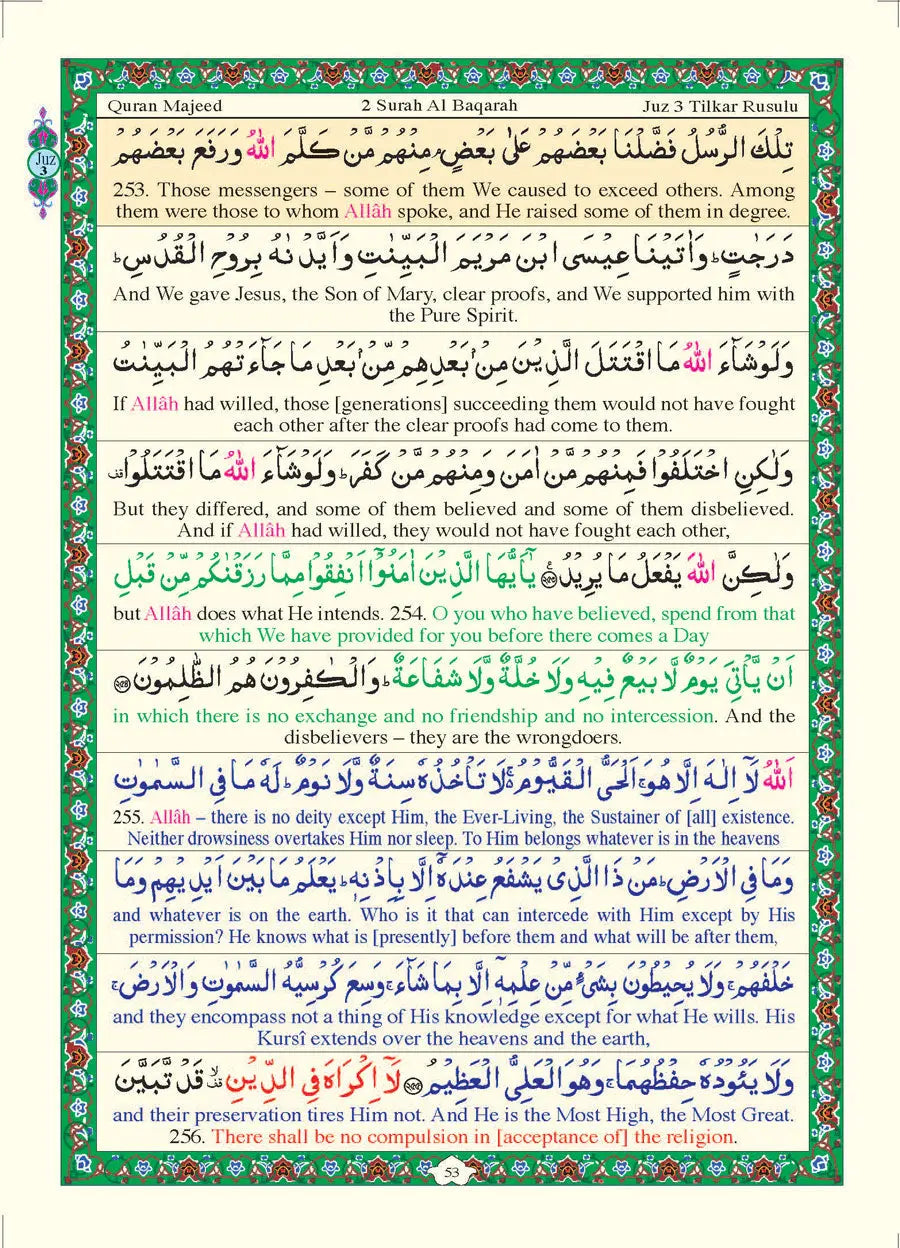 Quran Majeed 2 Surah Al Baqarah Juz 3 Tilkar Rusulu
Juz
3
تِلْكَ الرُّسُلُ فَضَّلْنَا بَعْضَهُمْ عَلٰى بَعْضٍۘ مِنْهُمْ مَّنْ كَلَّمَ اللّٰهُ وَرَفَعَ بَعْضَهُمْ
253. Those messengers – some of them We caused to exceed others. Among
them were those to whom Allâh spoke, and He raised some of them in degree.
دَرَجٰتٍؕ وَاٰتَيْنَا عِيْسَى ابْنَ مَرْيَمَ الْبَيِّنٰتِ وَاَيَّدْنٰهُ بِرُوْحِ الْقُدُسِؕ
And We gave Jesus, the Son of Mary, clear proofs, and We supported him with
the Pure Spirit.
وَلَوْ شَآءَ اللّٰهُ مَا اقْتَتَلَ الَّذِيْنَ مِنْۢ بَعْدِهِمْ مِّنْۢ بَعْدِ مَا جَآءَتْهُمُ الْبَيِّنٰتُ
If Allâh had willed, those [generations] succeeding them would not have fought
each other after the clear proofs had come to them.
وَلٰكِنِ اخْتَلَفُوْا فَمِنْهُمْ مَّنْ اٰمَنَ وَمِنْهُمْ مَّنْ كَفَرَؕ وَلَوْ شَآءَ اللّٰهُ مَا اقْتَتَلُوْا قف
But they differed, and some of them believed and some of them disbelieved.
And if Allâh had willed, they would not have fought each other,
وَلٰكِنَّ اللّٰهَ يَفْعَلُ مَا يُرِيْدُ ﴿۲۵۳﴾ يٰۤاَيُّهَا الَّذِيْنَ اٰمَنُوْۤا اَنْفِقُوْا مِمَّا رَزَقْنٰكُمْ مِّنْ قَبْلِ
but Allâh does what He intends. 254. O you who have believed, spend from that
which We have provided for you before there comes a Day
اَنْ يَّاْتِيَ يَوْمٌ لَّا بَيْعٌ فِيْهِ وَلَا خُلَّةٌ وَّلَا شَفَاعَةٌؕ وَالْكٰفِرُوْنَ هُمُ الظّٰلِمُوْنَ ﴿۲۵۴﴾
in which there is no exchange and no friendship and no intercession. And the
disbelievers – they are the wrongdoers.
اَللّٰهُ لَاۤ اِلٰهَ اِلَّا هُوَۚ اَلْحَيُّ الْقَيُّوْمُ ۚ لَا تَاْخُذُهٗ سِنَةٌ وَّلَا نَوْمٌؕ لَهٗ مَا فِي السَّمٰوٰتِ
255. Allâh – there is no deity except Him, the Ever-Living, the Sustainer of [all] existence.
Neither drowsiness overtakes Him nor sleep. To Him belongs whatever is in the heavens
وَمَا فِي الْاَرْضِؕ مَنْ ذَا الَّذِيْ يَشْفَعُ عِنْدَهٗۤ اِلَّا بِاِذْنِهٖؕ يَعْلَمُ مَا بَيْنَ اَيْدِيْهِمْ وَمَا
and whatever is on the earth. Who is it that can intercede with Him except by His
permission? He knows what is [presently] before them and what will be after them,
خَلْفَهُمْۚ وَلَا يُحِيْطُوْنَ بِشَيْءٍ مِّنْ عِلْمِهٖۤ اِلَّا بِمَا شَآءَۚ وَسِعَ كُرْسِيُّهُ السَّمٰوٰتِ وَالْاَرْضَۚ
and they encompass not a thing of His knowledge except for what He wills. His
Kursî extends over the heavens and the earth,
وَلَا يَـُٔوْدُهٗ حِفْظُهُمَاۚ وَهُوَ الْعَلِيُّ الْعَظِيْمُ ﴿۲۵۵﴾ لَاۤ اِكْرَاهَ فِي الدِّيْنِ قف قَدْ تَّبَيَّنَ
and their preservation tires Him not. And He is the Most High, the Most Great.
256. There shall be no compulsion in [acceptance of] the religion.
53